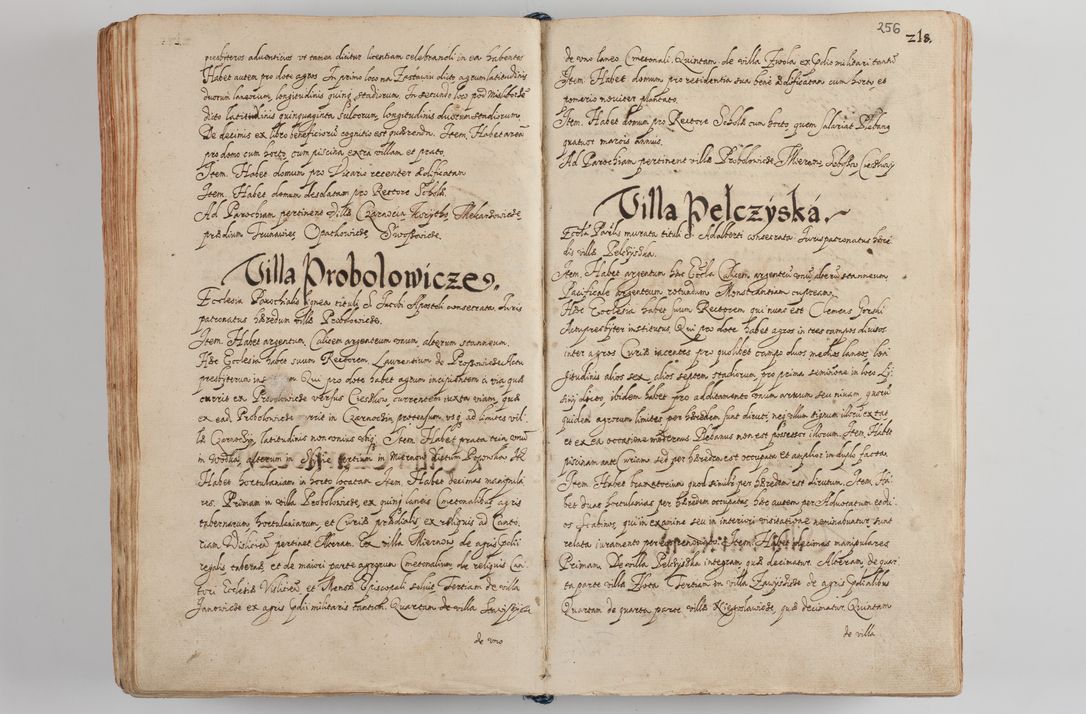 presbiteros adventicios vt tamen dicitur licentiam celebrandi in ea habentes
Habet autem pro dote agros. In primo loco na Zastawiu dicto agrum latitudinis
duorum laneorum, longitudinis quinq stadiorum. In secundo loco pod
dicto latitudinis quinquaginta sulcorum, longitudinis duorum stadiorum.
De decimis ex libro beneficiorum cognitio est quærenda. Item. Habet aream
pro domo cum horto, cum piscina extra villam et prato.
Item. Habet domum pro Vicario recenter ædificatam.
Item. Habet domum desolatam pro Rectore Scholæ.
Ad Parochiam pertinent Villæ
prædium
Villa Probolowicze.
Ecclesia Parochialis lignea tituli S. Iacobi Apostoli consecrata. Iuris
patronatus hæredum villæ Probolowicze.
Item. Habet argentum. Calicem argenteum vnum, alterum stanneum.
Hæc Ecclesia habet suum Rectorem. Laurentium de
presbyterum Qui pro dote habet agrum incipientem a via quæ
currit ex Probolowicze versus Czeskow, currentem iuxta viam, quæ
ex ead. Probolowicze in Czarnoczin protensum, vsq ad limites vil-
læ Czarnoczin, latitudinis non vnius vbiq. Item. Habet prata tria, vnum
in alterum in tertium in Mierzow dictum
Habet hortulaniam in horto locatam. Item. Habet decimas manipula
res. Primam in villa Probolowicze, ex quinq laneis Cmetonalibus agris
tabernarum, hortulaniarum, et Curiæ prædialis ex reliquis ad Canto
riam Visliciensem pertinet. Alteram. Ex villa Mierzow de agris prædii
regalis tabernæ, et de maiori parte agrorum Cmetonalium, de reliquis Can
tori Ecclesiæ Visliciensis, et Mensæ Episcopali solui. Tertiam de villa
Ianowicze ex agris prædii militaris tantum. Quartam de villa
de vno
256
218.
de vno laneo Cmetonali. Quintam de villa ex prædio militari tantum
Item. Habet domum pro residentia sua bene ædificatam cum horto, et
pomario noviter plantato.
Item. Habet domum pro Rectore Scholæ cum horto quem salariat Plebanus
quatuor marcis annuis.
Ad Parochiam pertinent villæ Probolowicze, Mierzow,
Villa Pełczýská.
Ecclesia Parochialis murata tituli S. Adalberti consecrata. Iuris patronatus hære
dis villæ Pelczyska.
Item. Habet argentum hæc Ecclesia Calicem argenteum vnum, alterum stanneum.
Pacificale argenteum rotundum. Monstrantiam cupream.
Hæc Ecclesia habet suum Rectorem, qui nunc est Clemens Gorski
Item presbiter institutus. Qui pro dote habet agros in tres campos divisos
inter agros Curiæ iacentes pro quolibet campo duos medios laneos lon
gitudinis alios sex, alios septem stadiorum, pro prima seminatione in loco
dicto, ibidem habet pro additamento vnum arvum seu niwam, quorum
quidem agrorum limites per hæredem sunt diruti, nec vllum signum illorum extat
et ex ea occasione modernus Plebanus non est possessor illorum. Item. Habet
piscinam ante Curiam sed per hæredem est occupata et amplior in duplo facta.
Item. Habet braxatorium quod similiter per hæredem est dirutum. Item. Ha
bet duas hortulanias per hæredem occupatas, hæc autem per Advocatum et di
os Scabinos, qui in examine seu in interiori visitatione nominabuntur, sunt
relata iuramento per eos præmisso. Item. Habet decimas manipulares
Primam. De villa Pelczyska integram quæ decimatur. Alteram, de quar
ta parte villæ Zlota. Tertiam in villa de agris prædialibus
Quartam de quarta parte villæ quæ decimatur. Quintam
de villa